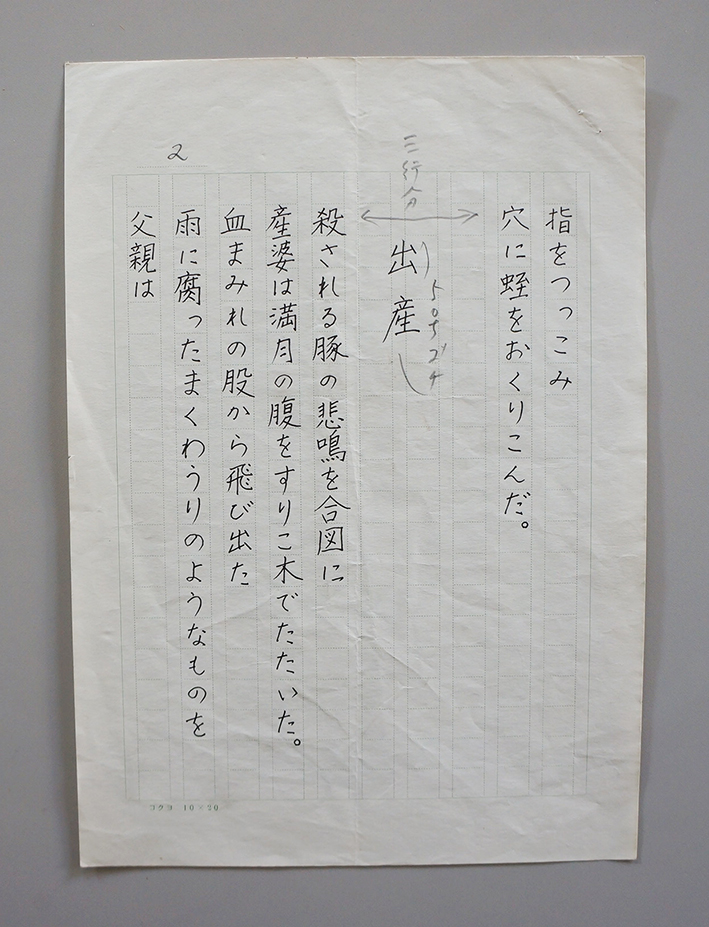 2
指をつっこみ
穴に蛭をおくりこんだ。
三行分
出産
5号ゴチ
殺される豚の悲鳴を合図に
産婆は満月の腹をすりこ木でたたいた。
血まみれの股から飛び出た
雨に腐ったまくわうりのようなものを
父親は
コクヨ 10×20